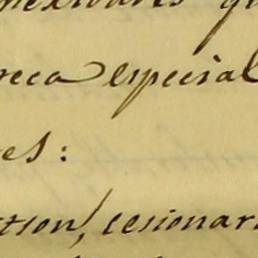 reca especial
es:
tson, cesionar